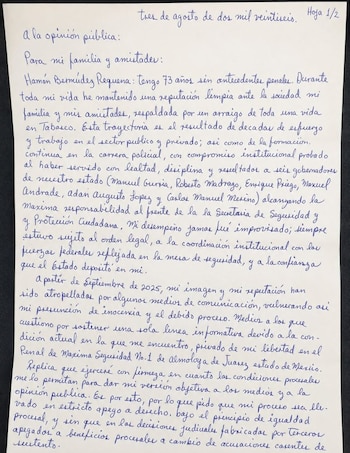 tres de agosto de dos mil veintiseis.
Hoja 1/2
A la opinión pública:
Para mi familia y amistades:
Hernán Bermúdez Requena: tengo 73 años sin antecedentes penales. Durante
toda mi vida he mantenido una reputación limpia ante la sociedad mi
familia y mis amistades, respaldada por un arraigo de toda una vida
en Tabasco. Esta trayectoria es el resultado de decadas de esfuerzo
y trabajo en el sector publico y privado; asi como de la formación
continua, en la carrera policial, con compromiso institucional probado
al haber servido con lealtad, disciplina y resultados a seis gobernadores
de nuestro estado (Manuel Gurría, Roberto Madrazo, Enrique Priego, Manuel
Andrade, Adan Augusto Lopez y Carlos Manuel Merino) alcanzando la
maxima responsabilidad al frente de la la Secretaria de Seguridad y
y Protección Ciudadana, Mi desempeño jamas fue improvisado; siempre
estuvo sujeto al orden legal, a la coordinación institucional con las
fuerzas federales reflejada en la mesa de seguridad, y a la confianza
que el Estado deposito en mi.
A partir de Septiembre de 2025, mi imagen y mi reputación han
sido atropelladas por algunos medios de comunicación, vulnerando asi
mi presunción de inocencia y el debido proceso. Medios a los que
cuestiono por sostener una sola linea informativa devido a la con-
dición actual en la que me encuentro, privado de mi libertad en el
Penal de Maxima Seguridad No.1 de Almoloya de Juarez estado de Mexico.
Replica que ejerceré con firmeza en cuanto las condiciones procesales
me lo permitan para dar mi versión objetiva a los medios y a la
opinion publica. Es por esto, por lo que pido que mi proceso sea lle-
vado en estricto apego a derecho, bajo el principio de igualdad
procesal, y sin que en las decisiones judiciales fabricadas por terceros
apegados a beneficios procesales a cambio de acusaciones carentes de
sustento.